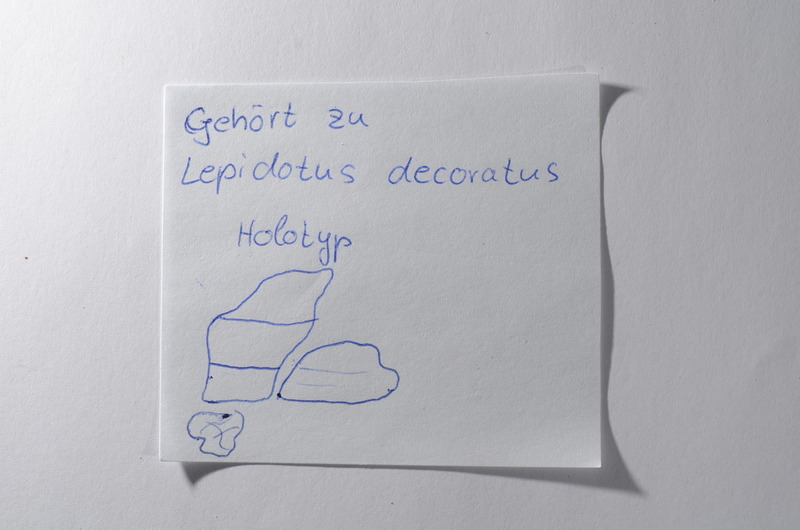 Gehört zu
Lepidotus decoratus
Holotyp